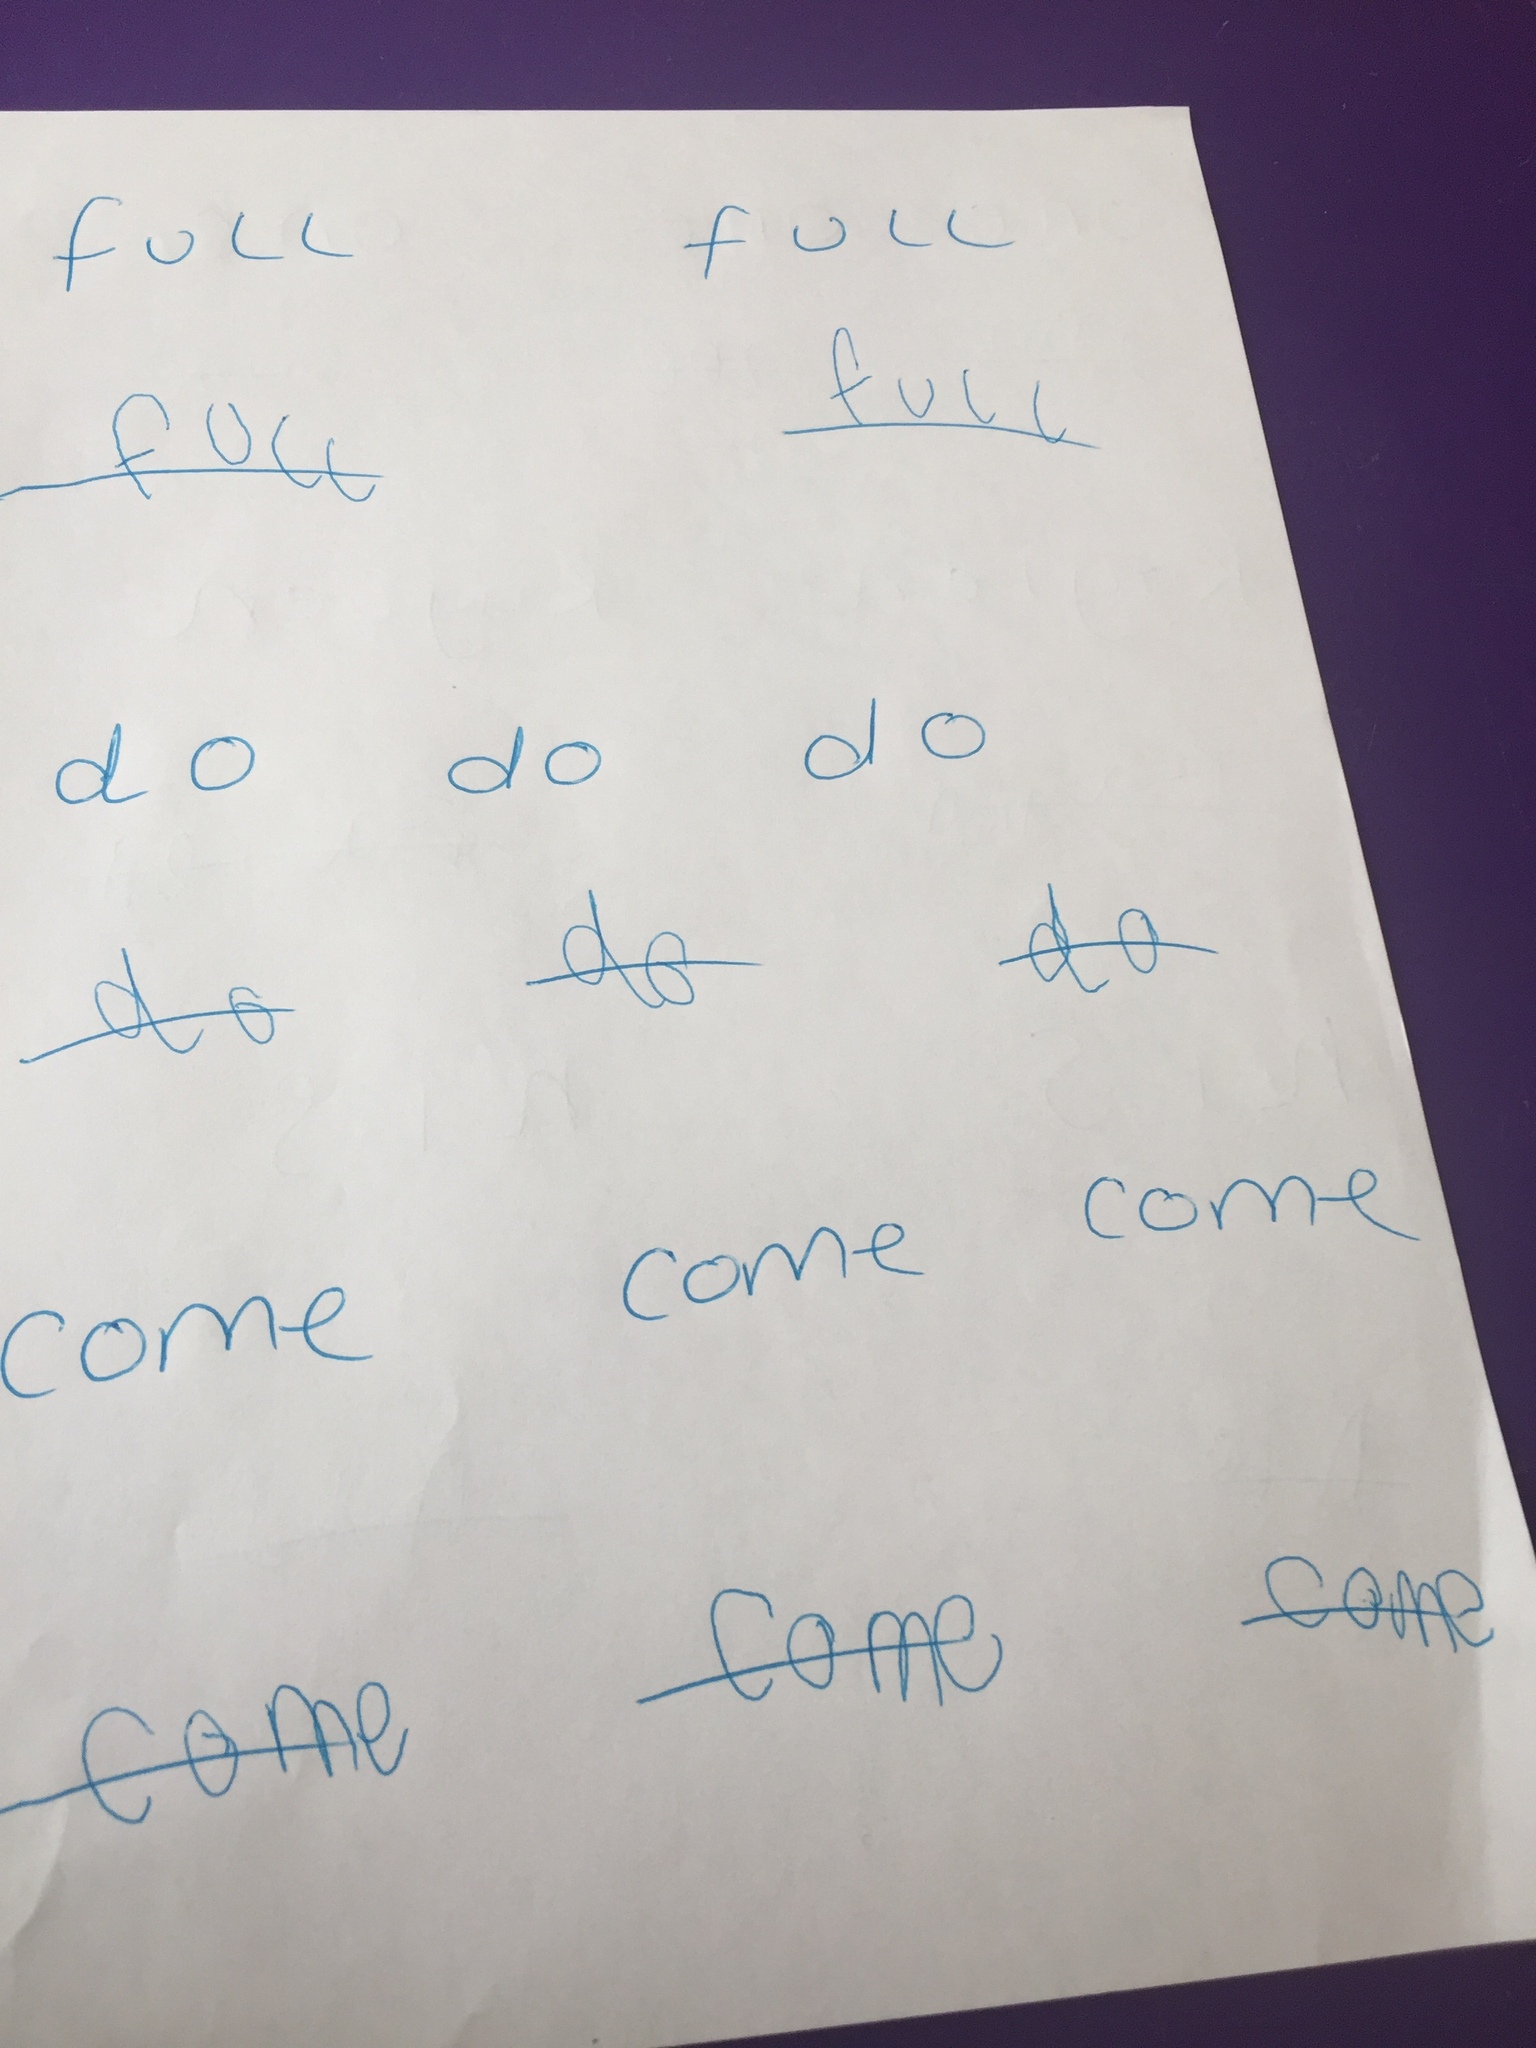 full full
full full
do do do
do do do
come come come
come come come